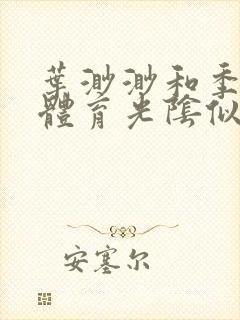 葉渺渺和季
體育光陰似
安塞尔